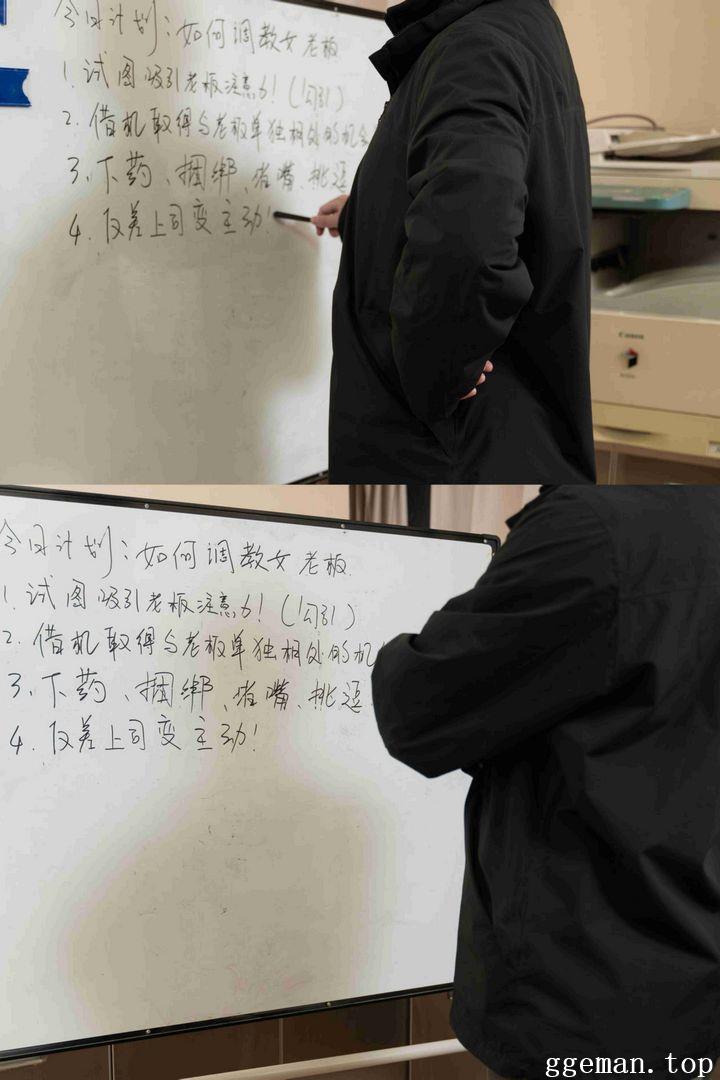 今日计划：如何调教女老板
1. 试图吸引老板注意力！（勾引）
2. 借机取得与老板单独相处的机会
3. 下药、捆绑、堵嘴、挑逗
4. 反差上司变主动！
Canon
今日计划：如何调教女老板
1. 试图吸引老板注意力！（勾引）
2. 借机取得与老板单独相处的机
3. 下药、捆绑、堵嘴、挑逗
4. 反差上司变主动！
ggeman.top